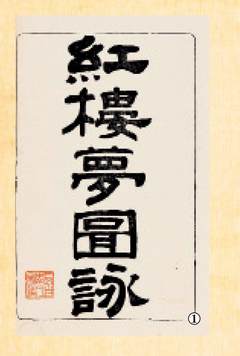 紅樓夢圖詠
①